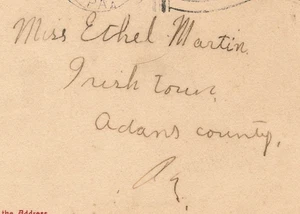 PA.
Miss Ethel Martin.
Irish town.
Adans county,
Pa.
the Address